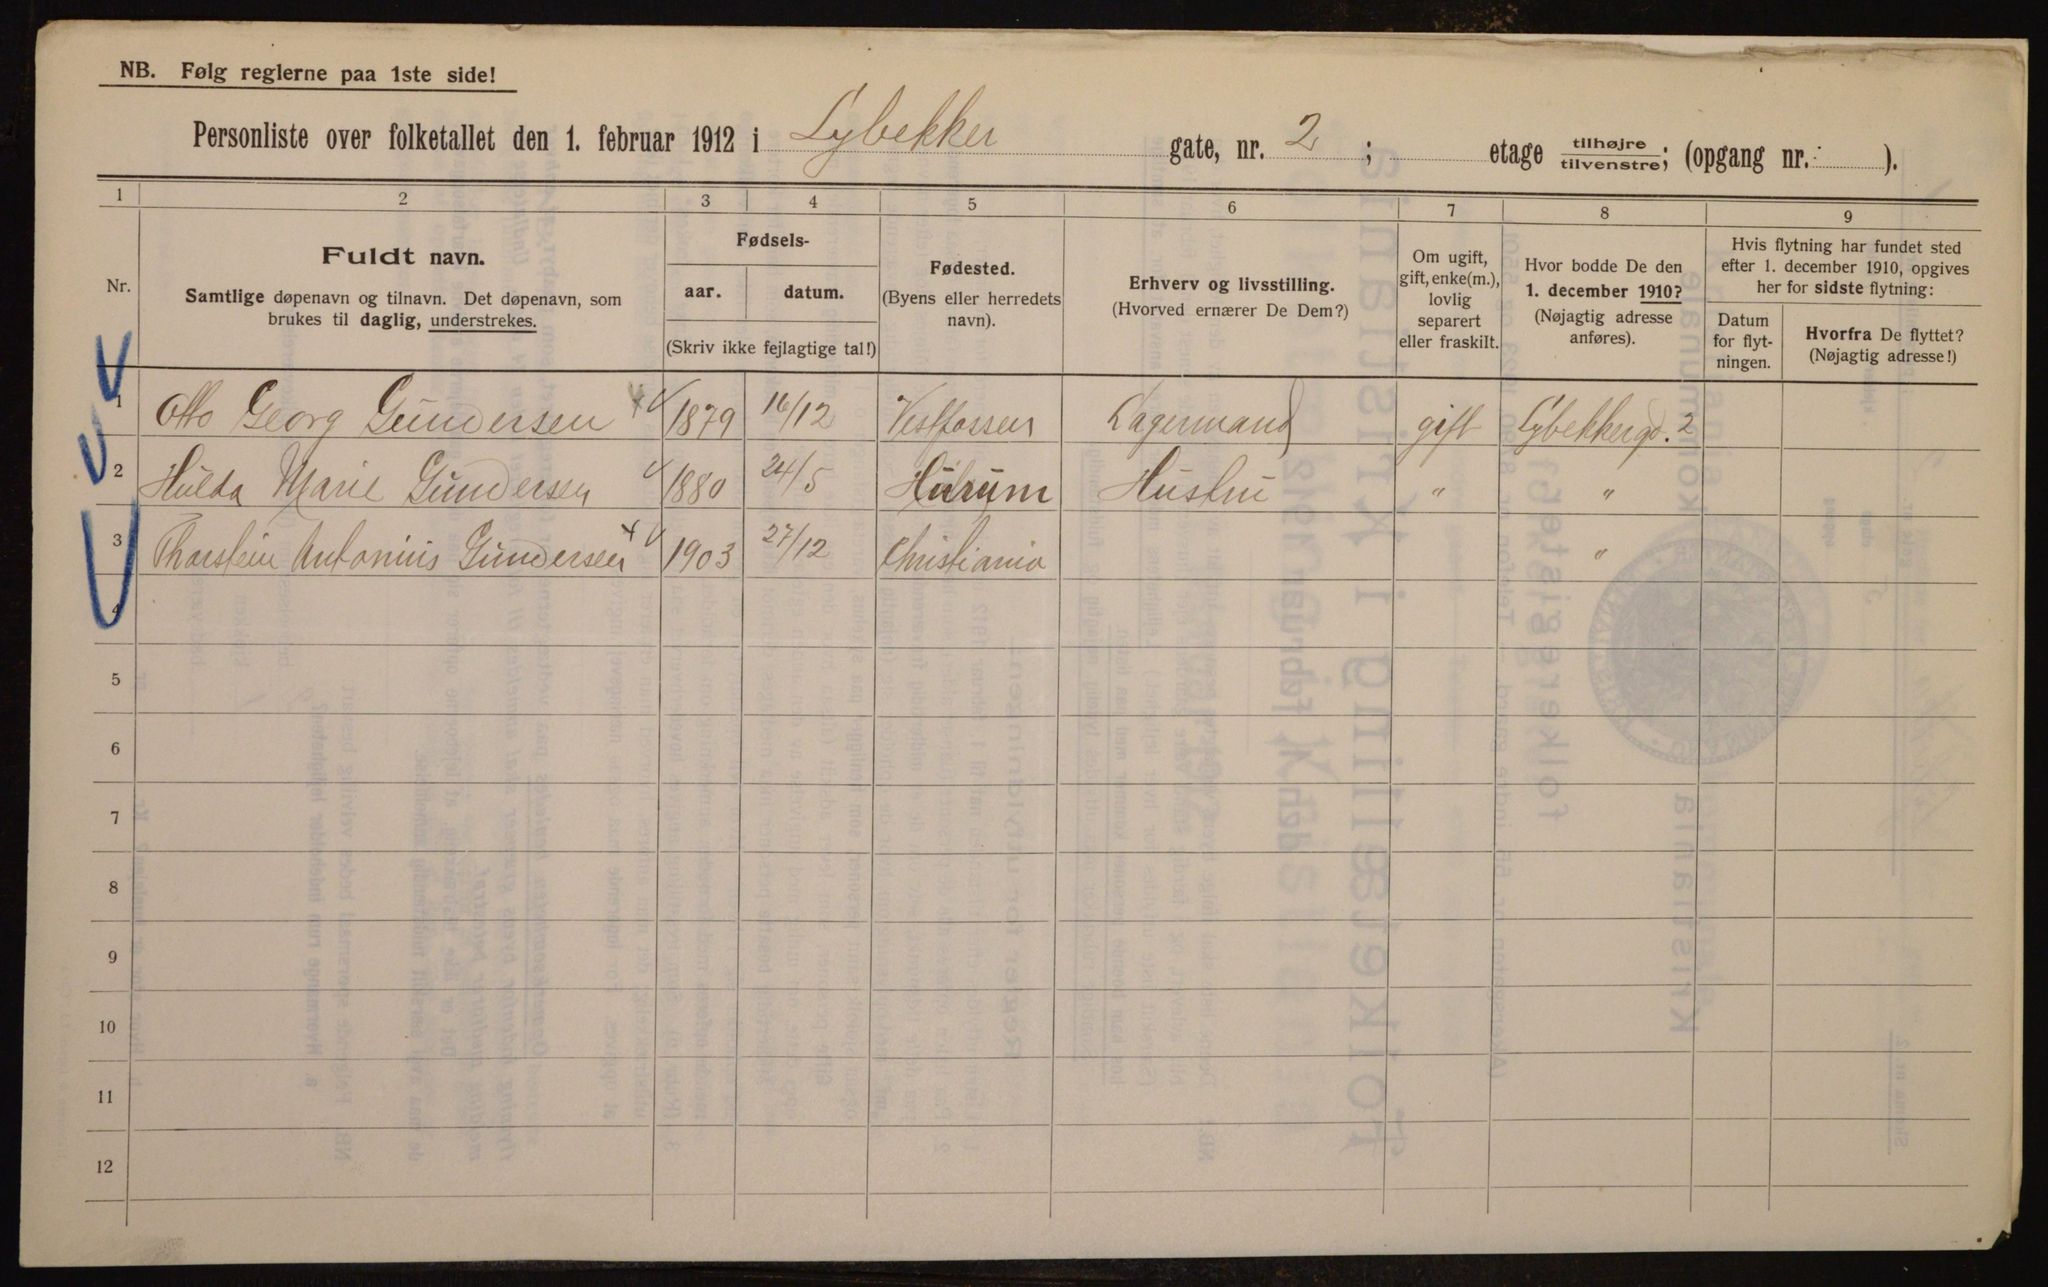 NB. Følg reglerne paa 1ste side!
Personliste over folketallet den 1. februar 1912 i Lybekker gate, nr. 2 ; etage tilhøjre tilvenstre; (opgang nr. ).
1 2 3 4 5 6 7 8 9
Nr.
Fuldt navn.
Samtlige døpenavn og tilnavn. Det døpenavn, som
brukes til daglig, understrekes.
Fødsels-
aar. datum.
(Skriv ikke fejlagtige tal!)
Fødested.
(Byens eller herredets
navn).
Erhverv og livsstilling.
(Hvorved ernærer De Dem?)
Om ugift,
gift, enke(m.),
lovlig
separert
eller fraskilt.
Hvor bodde De den
1. december 1910?
(Nøjagtig adresse
anføres).
Hvis flytning har fundet sted
efter 1. december 1910, opgives
her for sidste flytning:
Datum
for flyt-
ningen.
Hvorfra De flyttet?
(Nøjagtig adresse!)
1 Otto Georg Gundersen 1879 16/12 Vestfossen Lagermand gift Lybekkergd. 2
2 Hulda Marie Gundersen 1880 24/5 Hurum Hustru " "
3 Thorstein Antonius Gundersen 1903 27/12 Christiania "
4
5
6
7
8
9
10
11
12